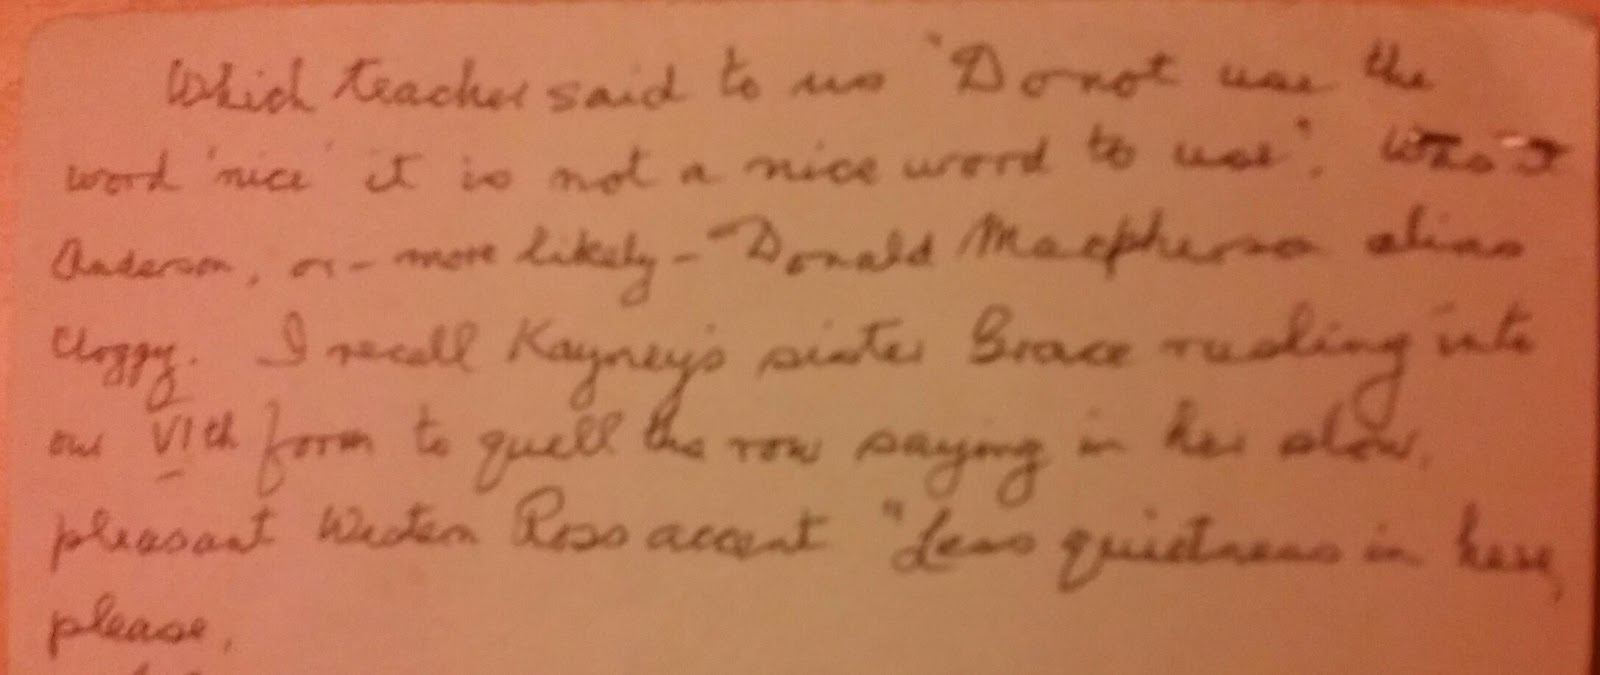 Which teacher said to us "Do not use the
word 'nice' it is not a nice word to use". Was it
Anderson, or - more likely - Donald Macpherson alias
Cloggy. I recall Kayney's sister Grace rushing into
our VIth form to quell the row saying in her slow,
pleasant Western Ross accent "Less quietness in here,
please,